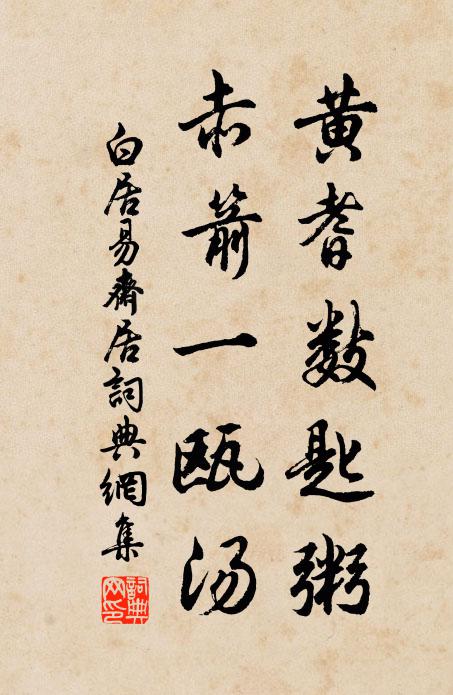 黄耆数匙粥
赤箭一瓯汤
白居易齋居詞典網集
詞典网印